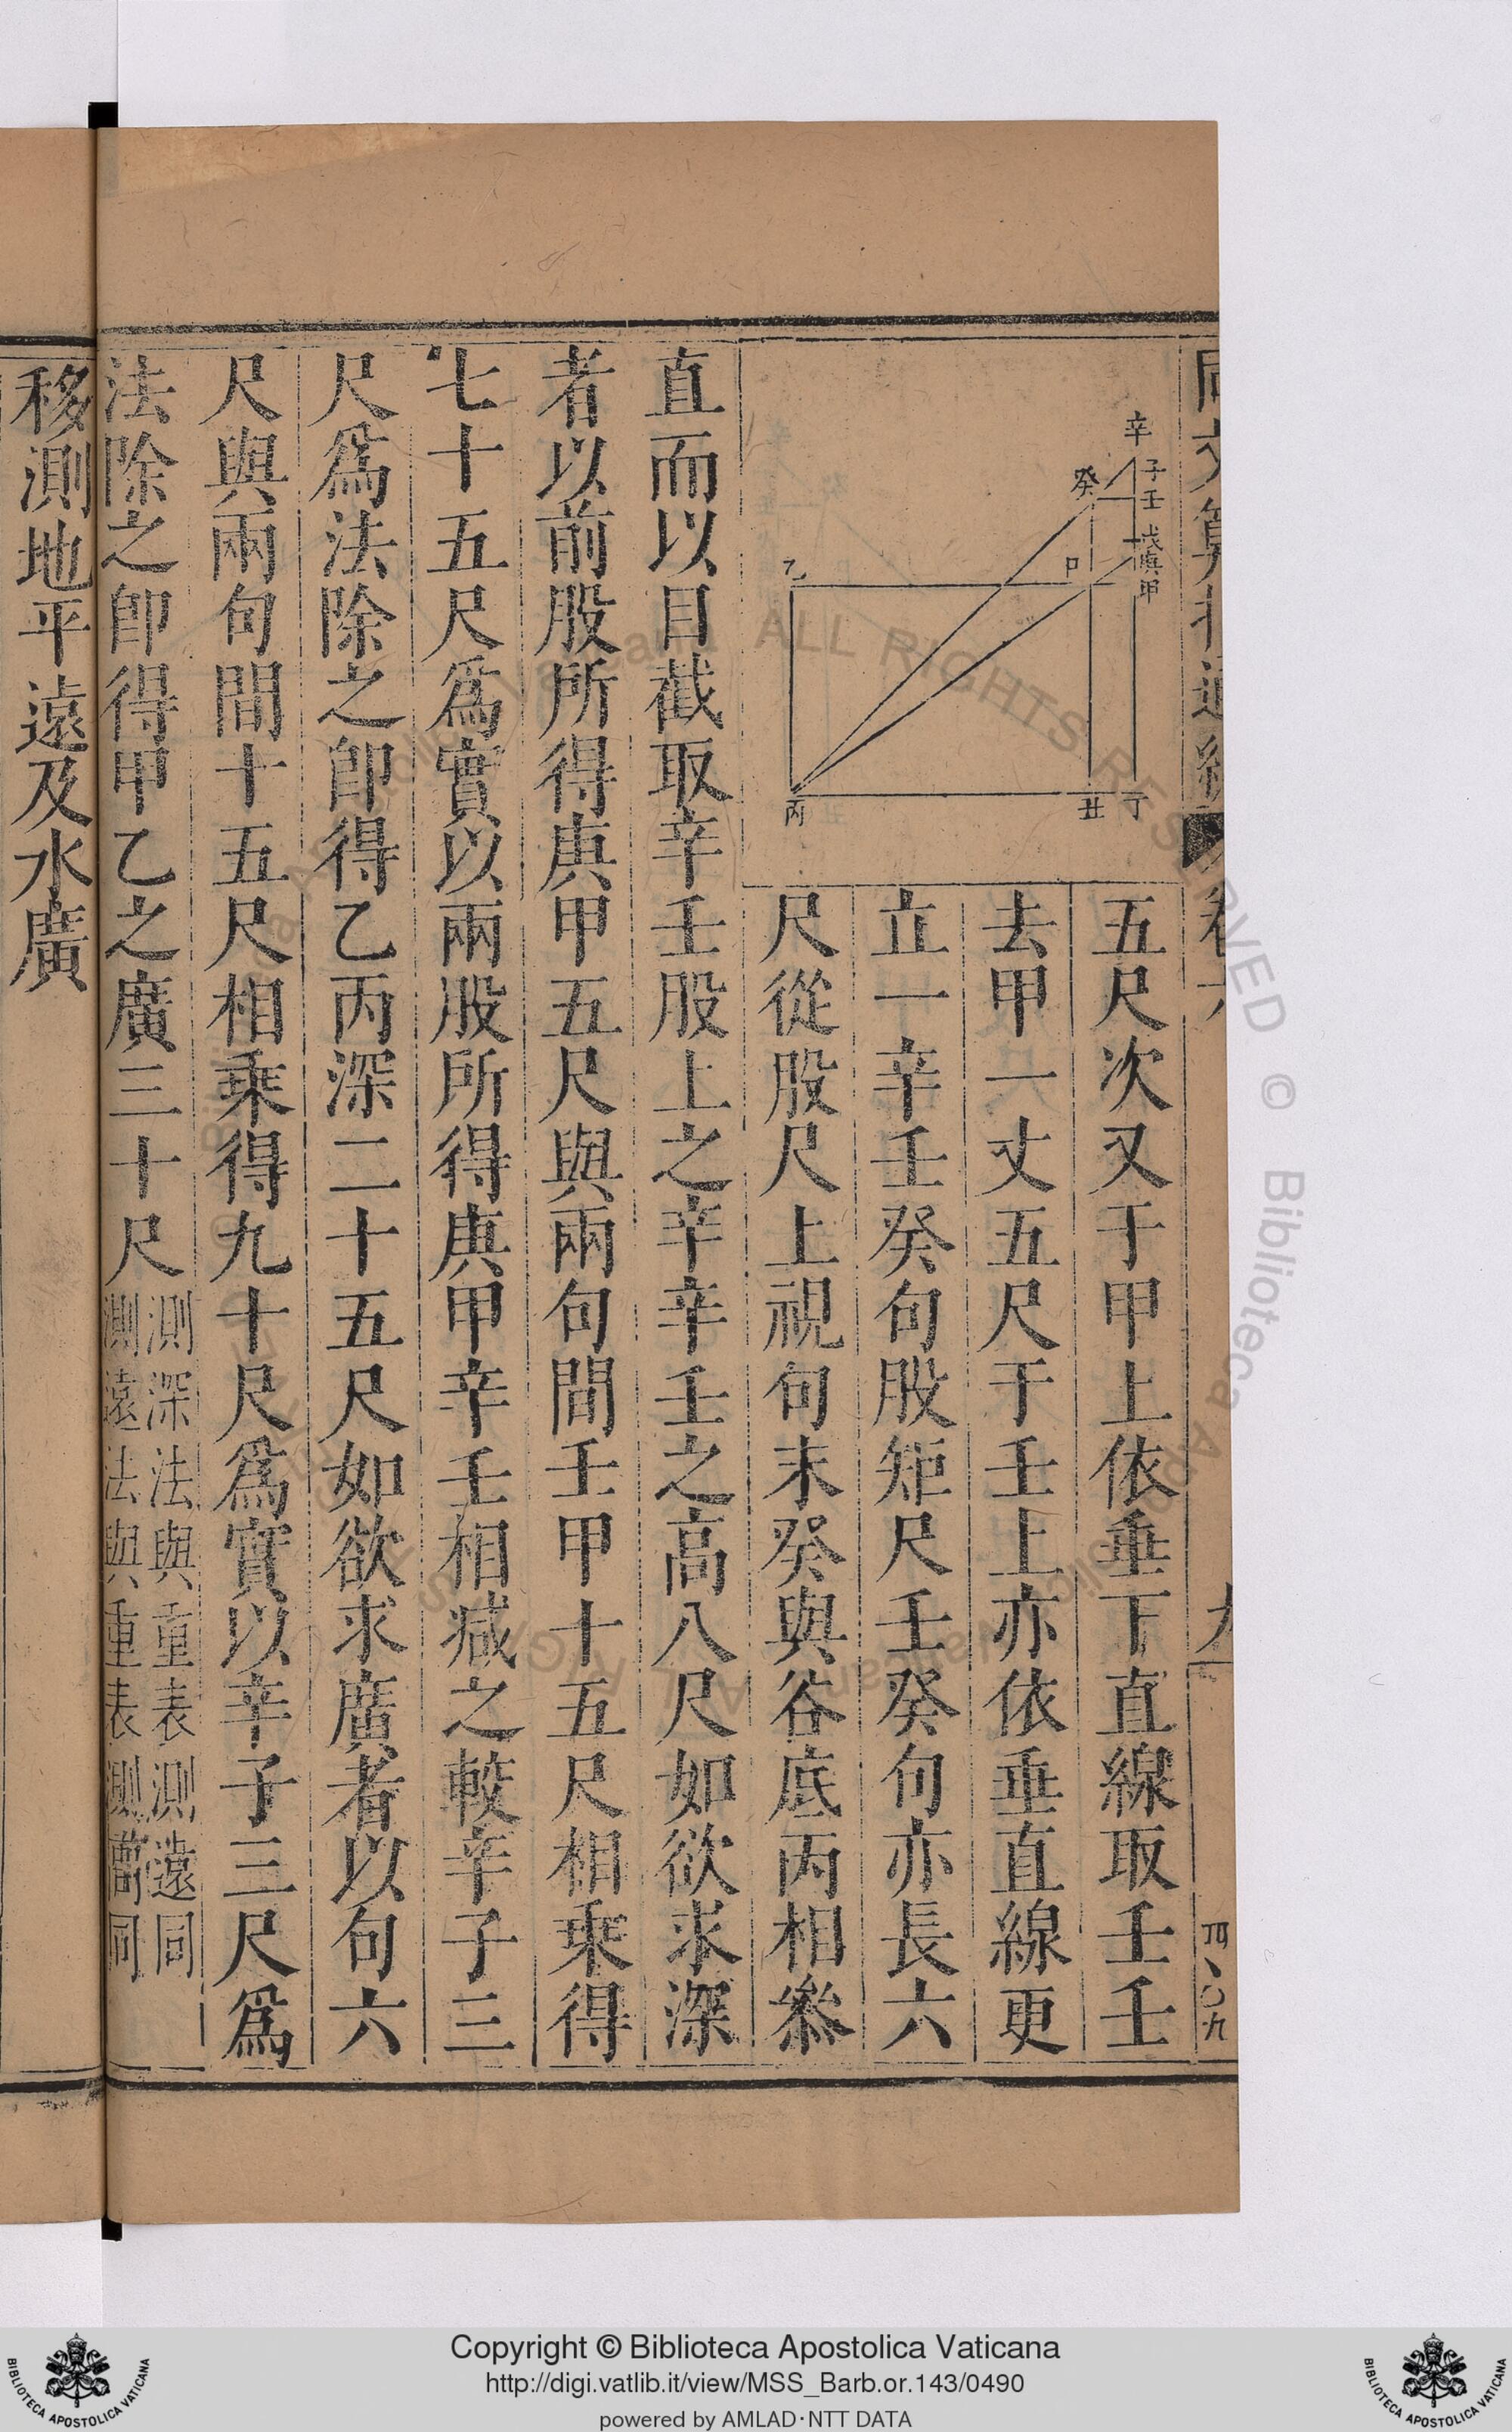 五尺次又于甲上依垂下直線取壬壬
去甲一丈五尺于壬上亦依垂直線更
立一辛壬癸句股矩尺壬癸句亦長六
尺從股尺上視句末癸與谷底丙相叅
直而以目截取辛壬股上之辛辛壬之高八尺如欲求深
者以前股所得庚甲五尺與兩句間壬甲十五尺相乘得
七十五尺爲實以兩股所得庚甲辛壬相減之較辛子三
尺爲法除之卽得乙丙深二十五尺如欲求廣者以句六
尺與兩句間十五尺相乘得九十尺爲實以辛子三尺爲
法除之卽得甲乙之廣三十尺
測深法與重表測遠同
測遠法與重表測高同
移測地平遠及水廣
辛
子
壬
癸
戊
甲
乙
丙
丑
丁
九
ALL RIGHTS RESERVED © Biblioteca Apostolica Vaticana
Copyright © Biblioteca Apostolica Vaticana
http://digi.vatlib.it/view/MSS_Barb.or.143/0490
powered by AMLAD·NTT DATA
BIBLIOTECA APOSTOLICA VATICANA
BIBLIOTECA APOSTOLICA VATICANA